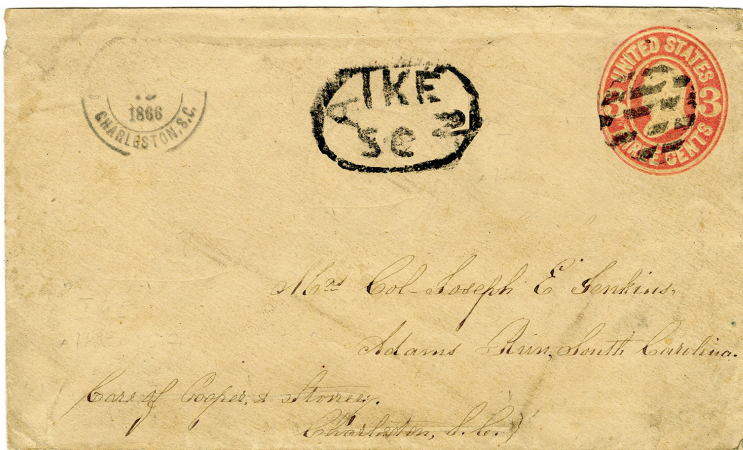 1866
CHARLESTON, S.C.
AIKEN
SC
UNITED STATES
3 3
THREE CENTS
Mrs Col Joseph E Jenkins,
Adams Run, South Carolina.
Care of Cooper, & Stoney.
Charleston, S.C.